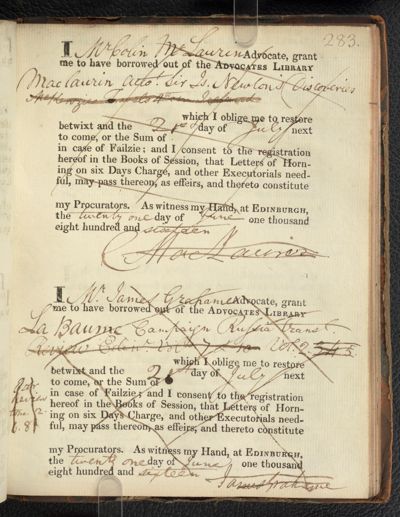 283.
I Mr Colin McLaurin Advocate, grant
me to have borrowed out of the ADVOCATES LIBRARY
Maclaurin Acct. Sir Is. Newton's Discoveries
which I oblige me to restore
betwixt and the 21st day of July next
to come, or the Sum of
in case of Failzie; and I consent to the registration
hereof in the Books of Session, that Letters of Horn-
ing on six Days Charge, and other Executorials need-
ful, may pass thereon, as effeirs, and thereto constitute
my Procurators. As witness my Hand, at EDINBURGH,
the twenty one day of June one thousand
eight hundred and sixteen
C MacLaurin
I Mr James Grahame Advocate, grant
me to have borrowed out of the ADVOCATES LIBRARY
La Baume Campaign Russia transl.
Review Edinr. Vol. 2
which I oblige me to restore
betwixt and the 21 day of July next
to come, or the Sum of
in case of Failzie; and I consent to the registration
hereof in the Books of Session, that Letters of Horn-
ing on six Days Charge, and other Executorials need-
ful, may pass thereon, as effeirs, and thereto constitute
my Procurators. As witness my Hand, at EDINBURGH,
the twenty one day of June one thousand
eight hundred and sixteen
James Grahame
Review